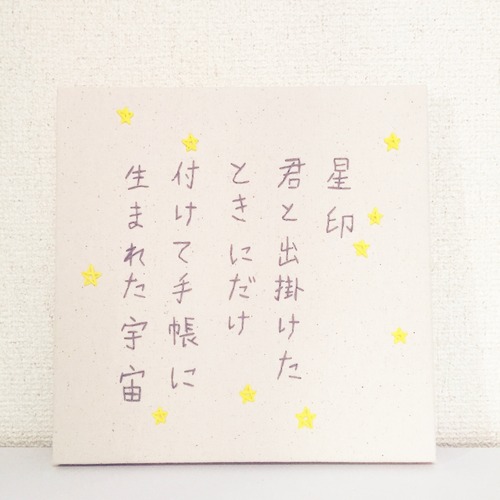 星印
君と出掛けた
ときにだけ
付けて手帳に
生まれた宇宙